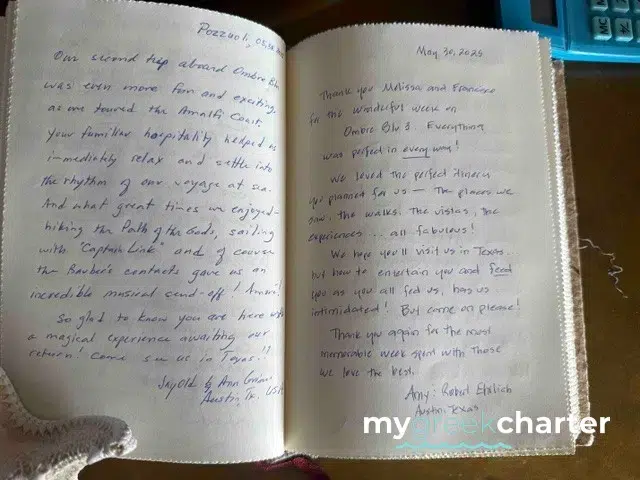 Pozzuoli,
Our second trip aboard Ombre Blu
was even more fun and exciting
as we toured the Amalfi Coast.
Your familiar hospitality helped us
immediately relax and settle into
the rhythm of our voyage at sea.
And what great times we enjoyed-
hiking the Path of the Gods, sailing
with "Captain Link" and of course
the Barber's contacts gave us an
incredible musical send-off!
So glad to know you are here with
a magical experience awaiting our
return! Come see us in Texas!!
& Ann
Austin, Tx. USA
May 30, 2025
Thank you Melissa and Francisco
for the wonderful week on
Ombre Blu 3. Everything
was perfect in every way!
We loved the perfect itinerary
you planned for us — The places we
saw. The walks. The vistas, the
experiences ... all fabulous!
We hope you'll visit us in Texas...
but how to entertain you and feed
you as you all fed us, has us
intimidated! But come on please!
Thank you again for the most
memorable week spent with those
we love the best.
Amy & Robert Ehrlich
Austin, Texas
mygreekcharter